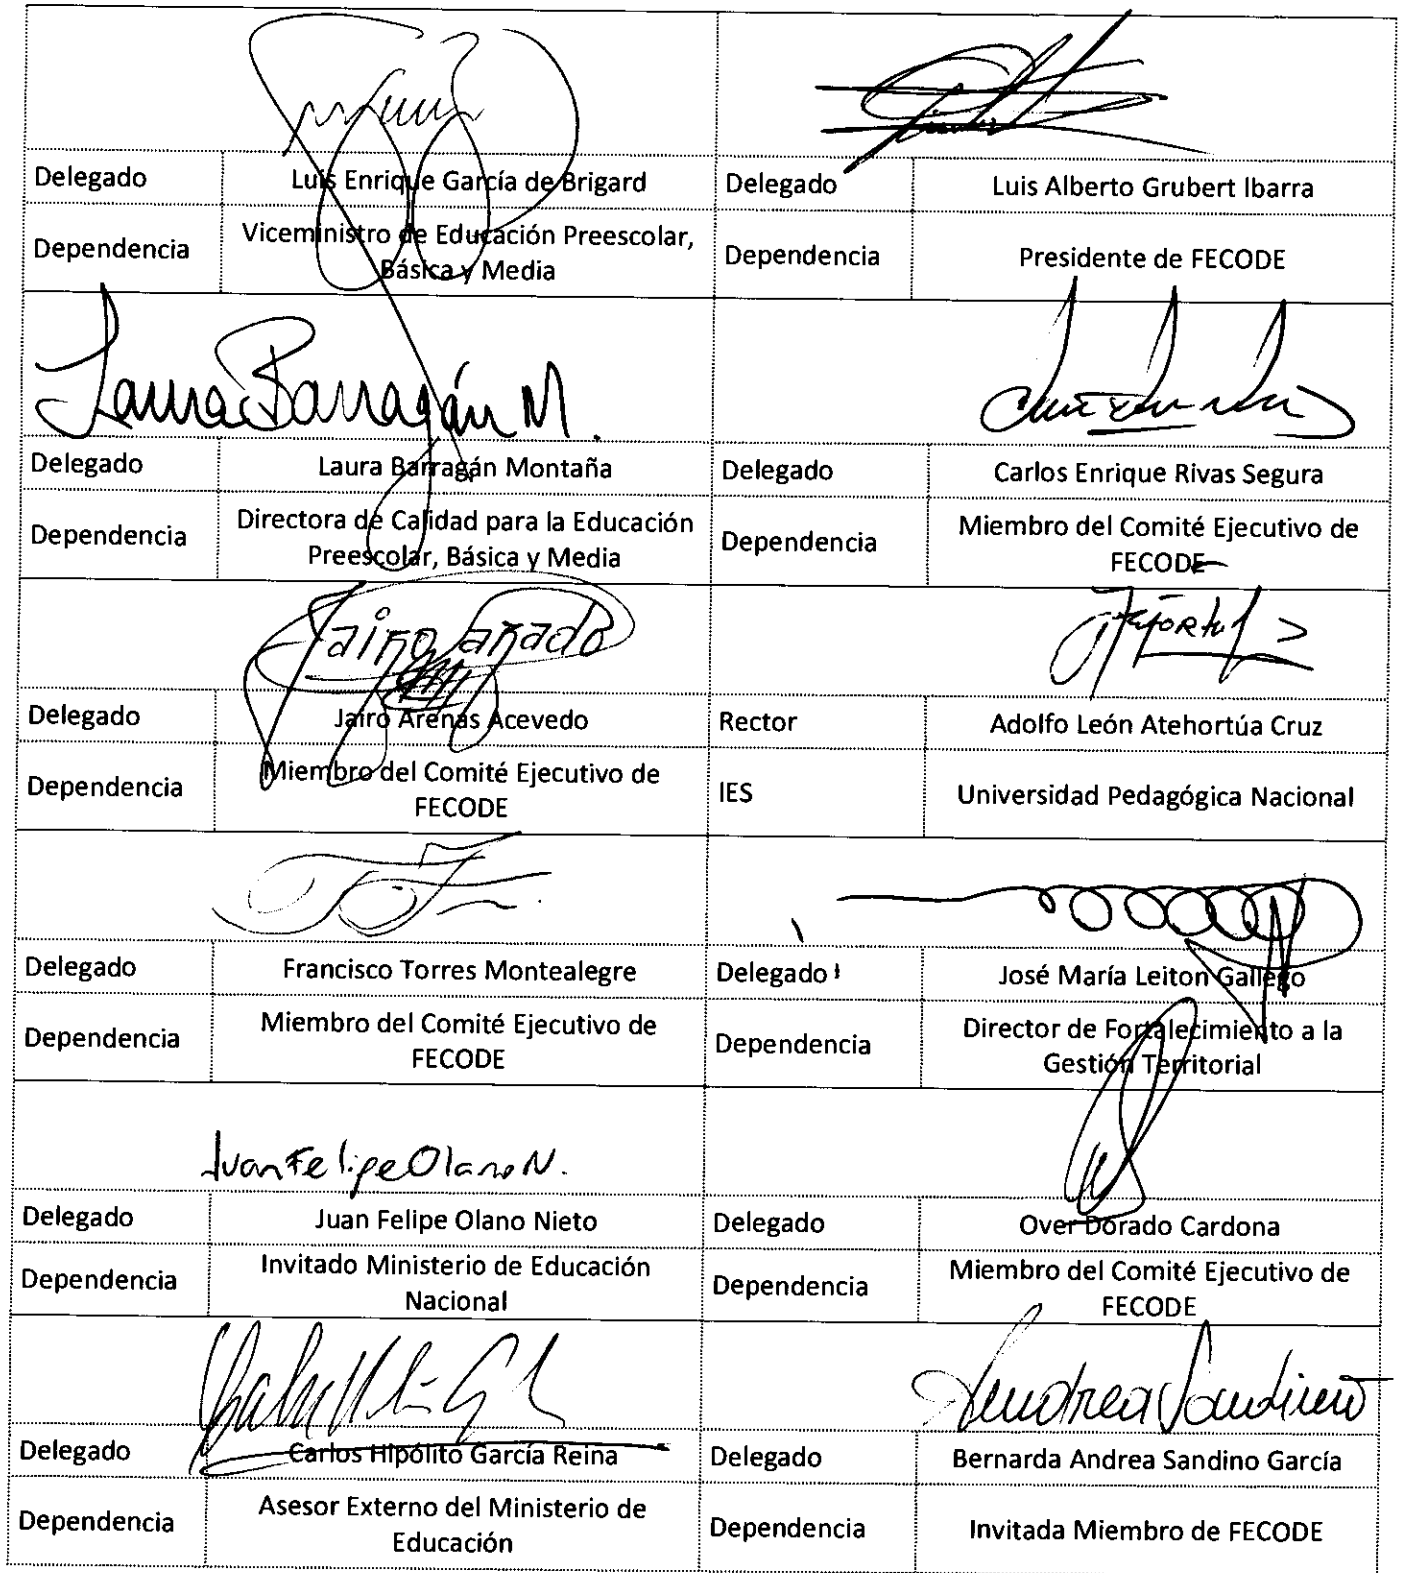 Delegado Luis Enrique García de Brigard Delegado Luis Alberto Grubert Ibarra
Dependencia Viceministro de Educación Preescolar, Básica y Media Dependencia Presidente de FECODE
Laura Barragán M.
Delegado Laura Barragán Montaña Delegado Carlos Enrique Rivas Segura
Dependencia Directora de Calidad para la Educación Preescolar, Básica y Media Dependencia Miembro del Comité Ejecutivo de FECODE
Delegado Jairo Arenas Acevedo Rector Adolfo León Atehortúa Cruz
Dependencia Miembro del Comité Ejecutivo de FECODE IES Universidad Pedagógica Nacional
Delegado Francisco Torres Montealegre Delegado José María Leiton Gallego
Dependencia Miembro del Comité Ejecutivo de FECODE Dependencia Director de Fortalecimiento a la Gestión Territorial
Juan Felipe Olano N.
Delegado Juan Felipe Olano Nieto Delegado Over Dorado Cardona
Dependencia Invitado Ministerio de Educación Nacional Dependencia Miembro del Comité Ejecutivo de FECODE
Andrea Sandino
Delegado Carlos Hipólito García Reina Delegado Bernarda Andrea Sandino García
Dependencia Asesor Externo del Ministerio de Educación Dependencia Invitada Miembro de FECODE